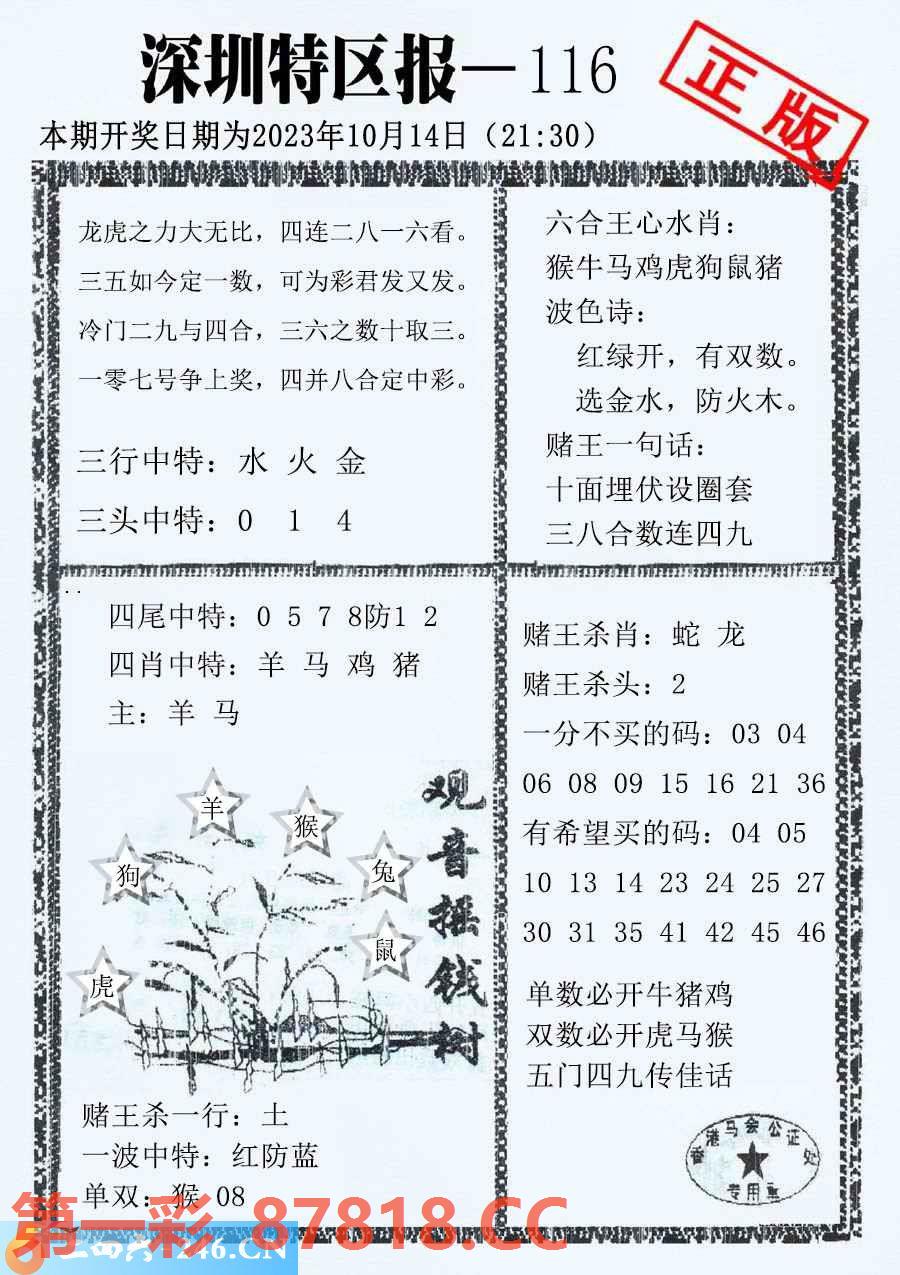 深圳特区报—116
正版
本期开奖日期为2023年10月14日（21:30）
龙虎之力大无比，四连二八一六看。
三五如今定一数，可为彩君发又发。
冷门二九与四合，三六之数十取三。
一零七号争上奖，四并八合定中彩。
三行中特：水 火 金
三头中特：0 1 4
六合王心水肖：
猴牛马鸡虎狗鼠猪
波色诗：
红绿开，有双数。
选金水，防火木。
赌王一句话：
十面埋伏设圈套
三八合数连四九
四尾中特：0 5 7 8防1 2
四肖中特：羊 马 鸡 猪
主：羊 马
羊
猴
狗
兔
鼠
虎
观音摇钱树
赌王杀一行：土
一波中特：红防蓝
单双：猴 08
赌王杀肖：蛇 龙
赌王杀头：2
一分不买的码：03 04
06 08 09 15 16 21 36
有希望买的码：04 05
10 13 14 23 24 25 27
30 31 35 41 42 45 46
单数必开牛猪鸡
双数必开虎马猴
五门四九传佳话
香港马会公证处
专用章
第一彩 87818.CC
246.CN